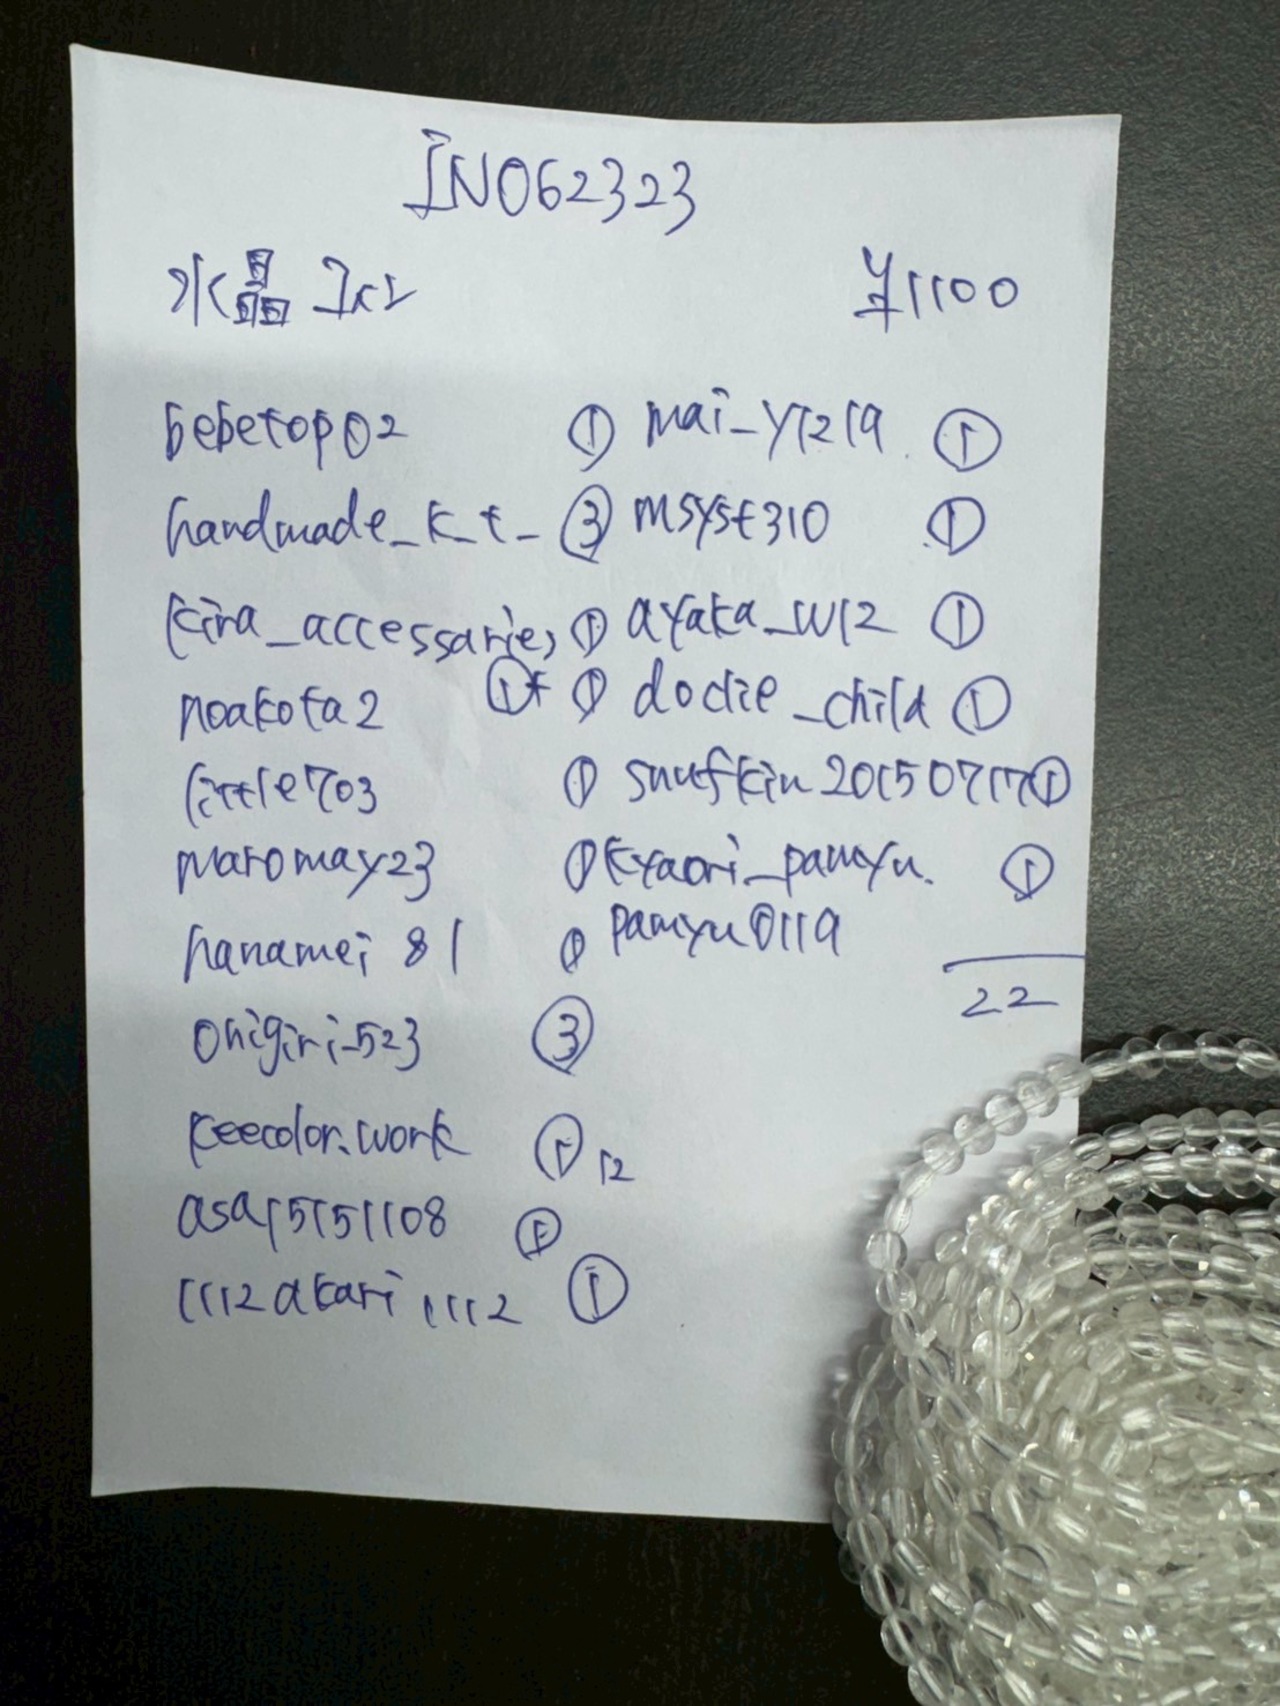 INO62323
水晶 ¥1100
bebetop02 ① mai_y1219 ①
handmade_k_t_ ③ msyst310 ①
kira_accessaries ① ayaka_w12 ①
noakota2 ① ① dodie_child ①
little703 ① snufkin20150717 ①
maromay23 ① kyaori_pamyu. ①
hanamei81 ① pamyu0119
22
onigiri_523 ③
keecolor.work ① 12
asa15151108 ①
1112akari1112 ①